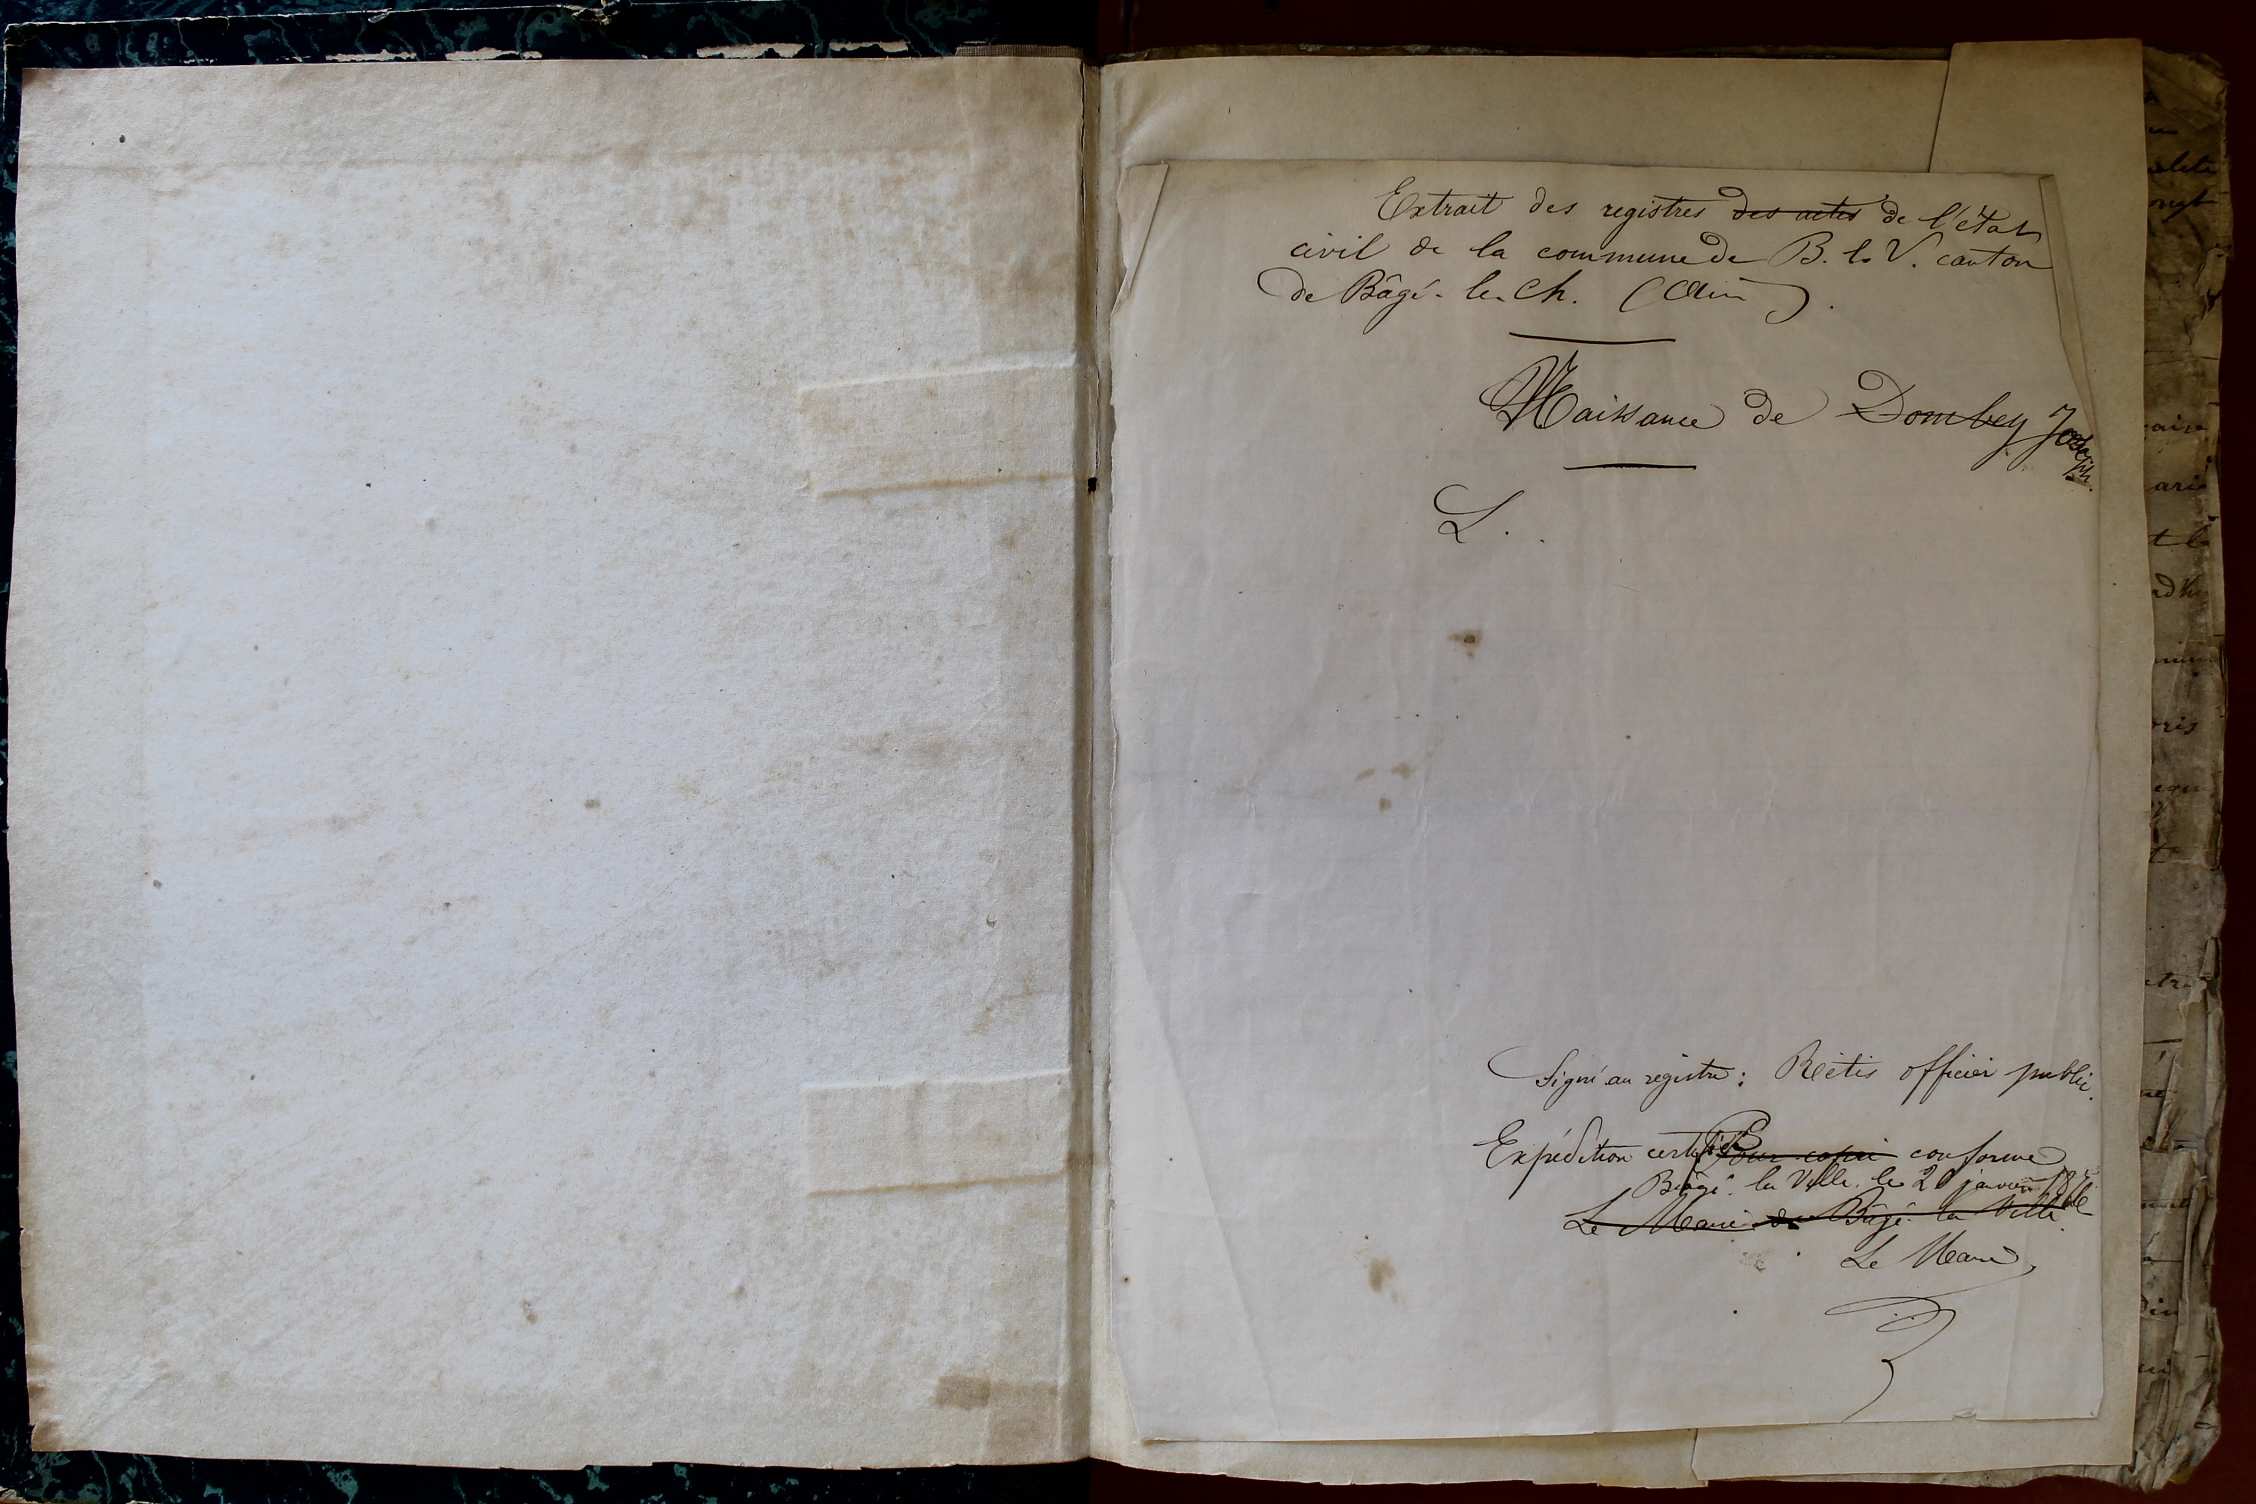 Extrait des registres des actes de l'état
civil de la commune de B. la V. canton
de Bâgé-le-Ch. (Ain).
Naissance de Dombey Joseph.
L.
Signé au registre : Rétis officier public.
Expédition certifiée Pour copie conforme
Bâgé-la Ville le 20 janvier
Le Maire de Bâgé-la Ville.
Le Maire,